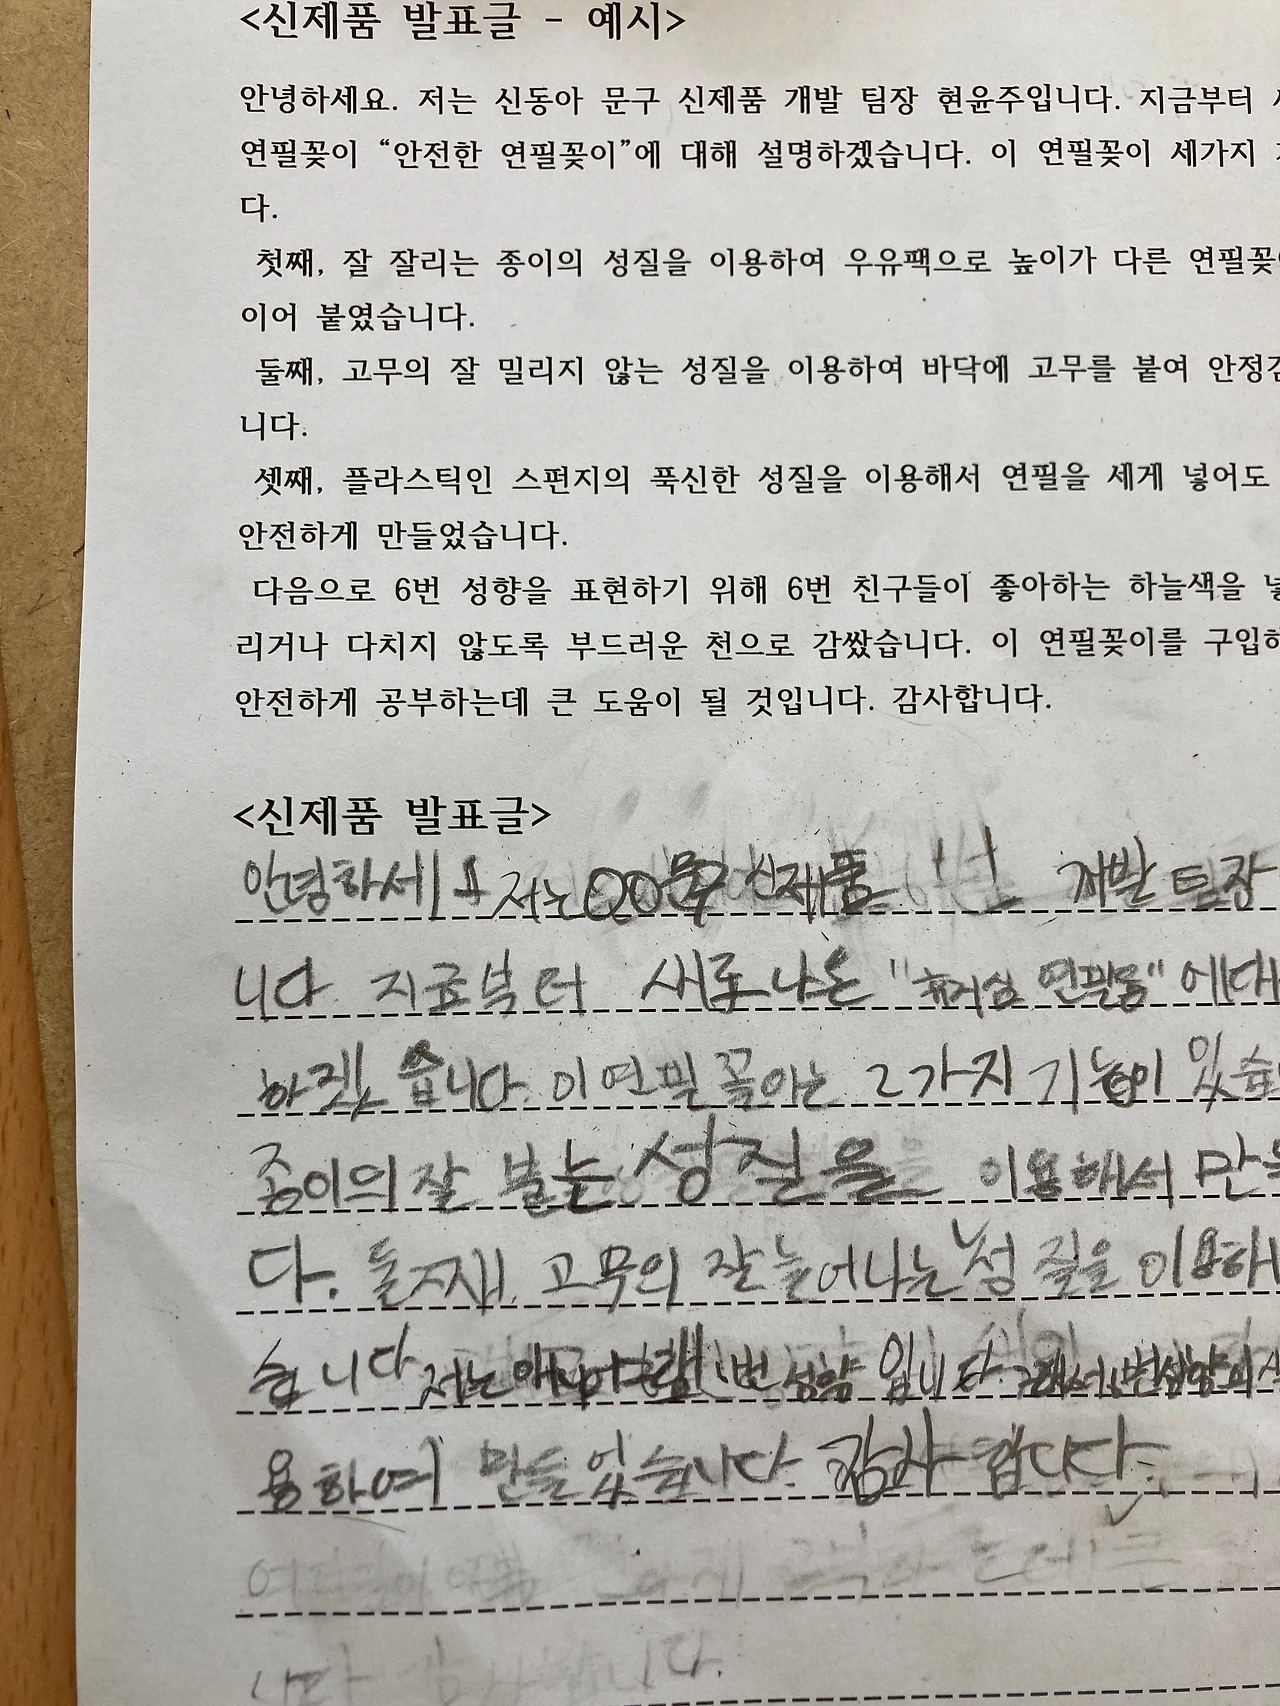 <신제품 발표글 - 예시>
안녕하세요. 저는 신동아 문구 신제품 개발 팀장 현윤주입니다. 지금부터
연필꽂이 “안전한 연필꽂이”에 대해 설명하겠습니다. 이 연필꽂이 세가지
다.
첫째, 잘 잘리는 종이의 성질을 이용하여 우유팩으로 높이가 다른
이어 붙였습니다.
둘째, 고무의 잘 밀리지 않는 성질을 이용하여 바닥에 고무를 붙여
니다.
셋째, 플라스틱인 스펀지의 푹신한 성질을 이용해서 연필을 세게 넣어도
안전하게 만들었습니다.
다음으로 6번 성향을 표현하기 위해 6번 친구들이 좋아하는 하늘색을
리거나 다치지 않도록 부드러운 천으로 감쌌습니다. 이 연필꽂이를
안전하게 공부하는데 큰 도움이 될 것입니다. 감사합니다.
<신제품 발표글>
안녕하세요 저는 OO문구 신제품 개발 팀장
니다. 지금부터 새로 나온 "휴지심 연필꽂" 에대
하겠습니다. 이 연필 꽂이는 2가지 기능이
종이의 잘 붙는 성질을 이용해서
다. 둘째, 고무의 잘 늘어나는 성질을
습니다 저는 1번 성향 입니다. 그래서 1번성향의
용하여 만들었습니다. 감사합니다.
니다.